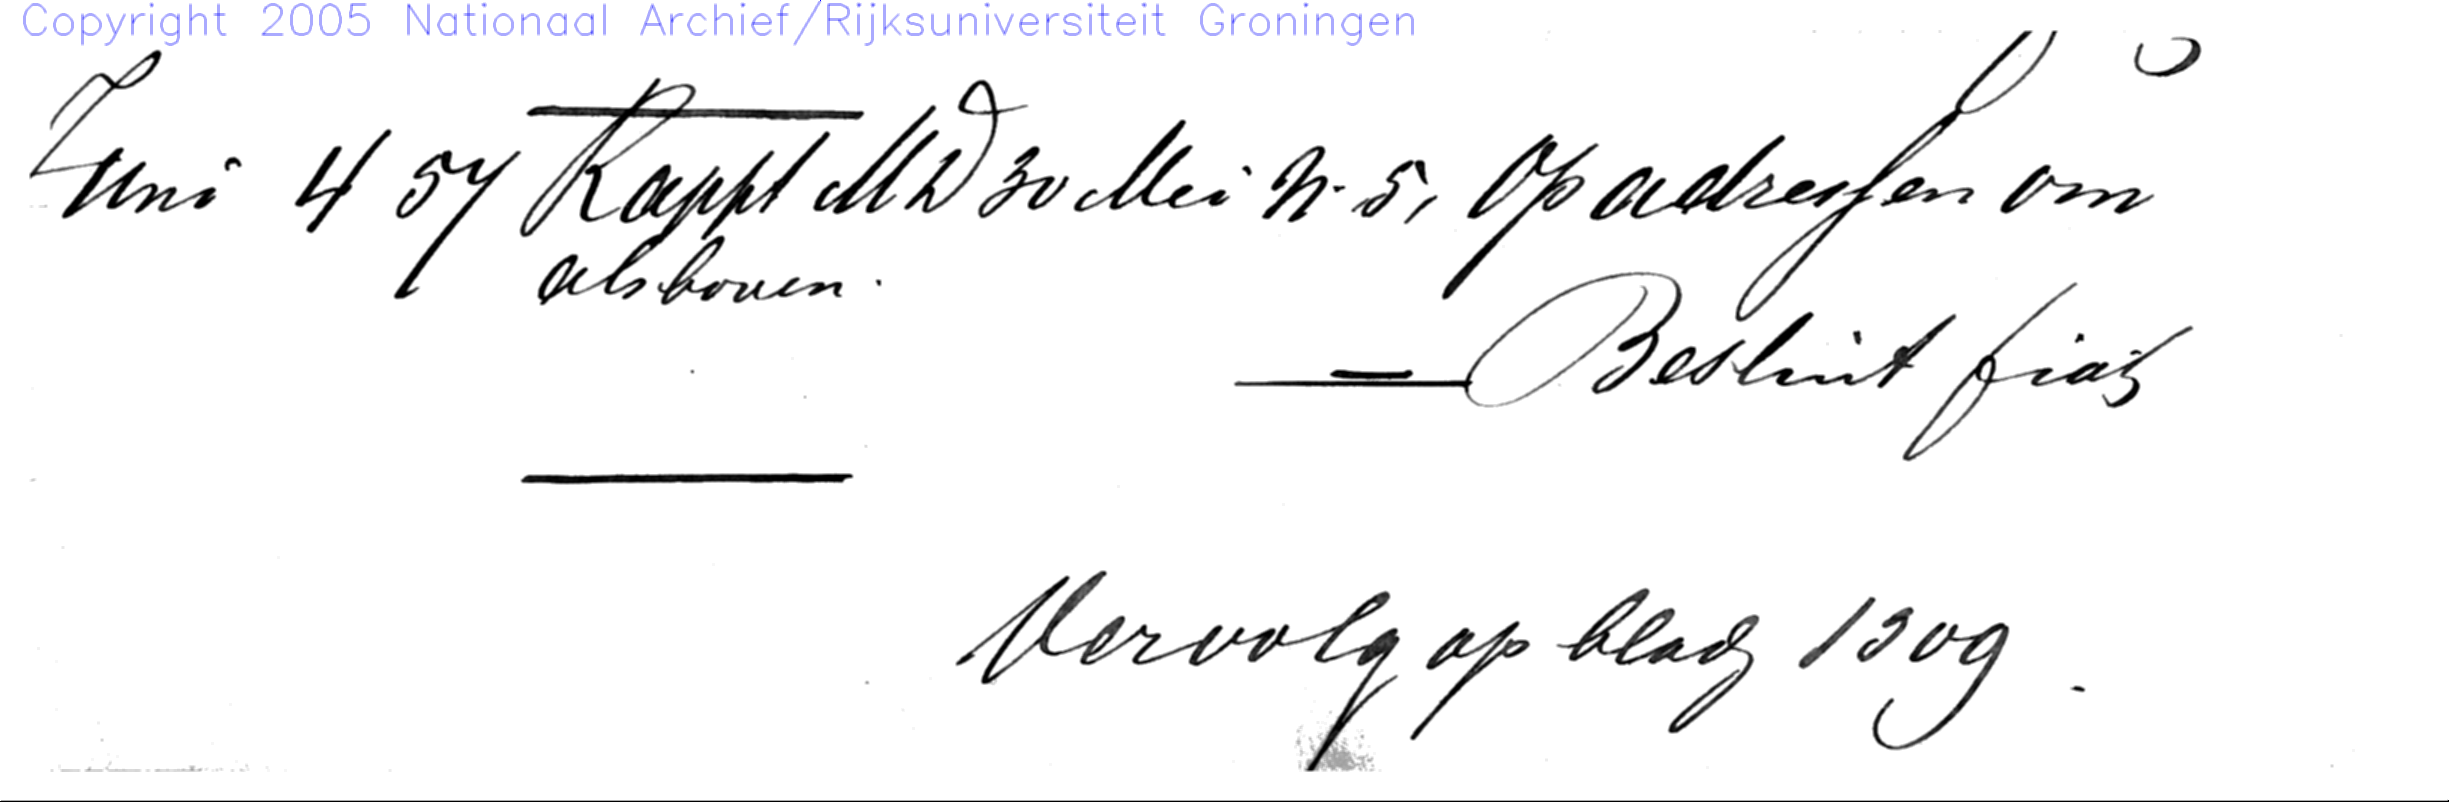 Copyright 2005 Nationaal Archief/Rijksuniversiteit Groningen
Juni 4 57 Rappt MD 30 Mei N. 5, op adressen om
alsboven.
Besluit fiat
Vervolg op bladz 1309.